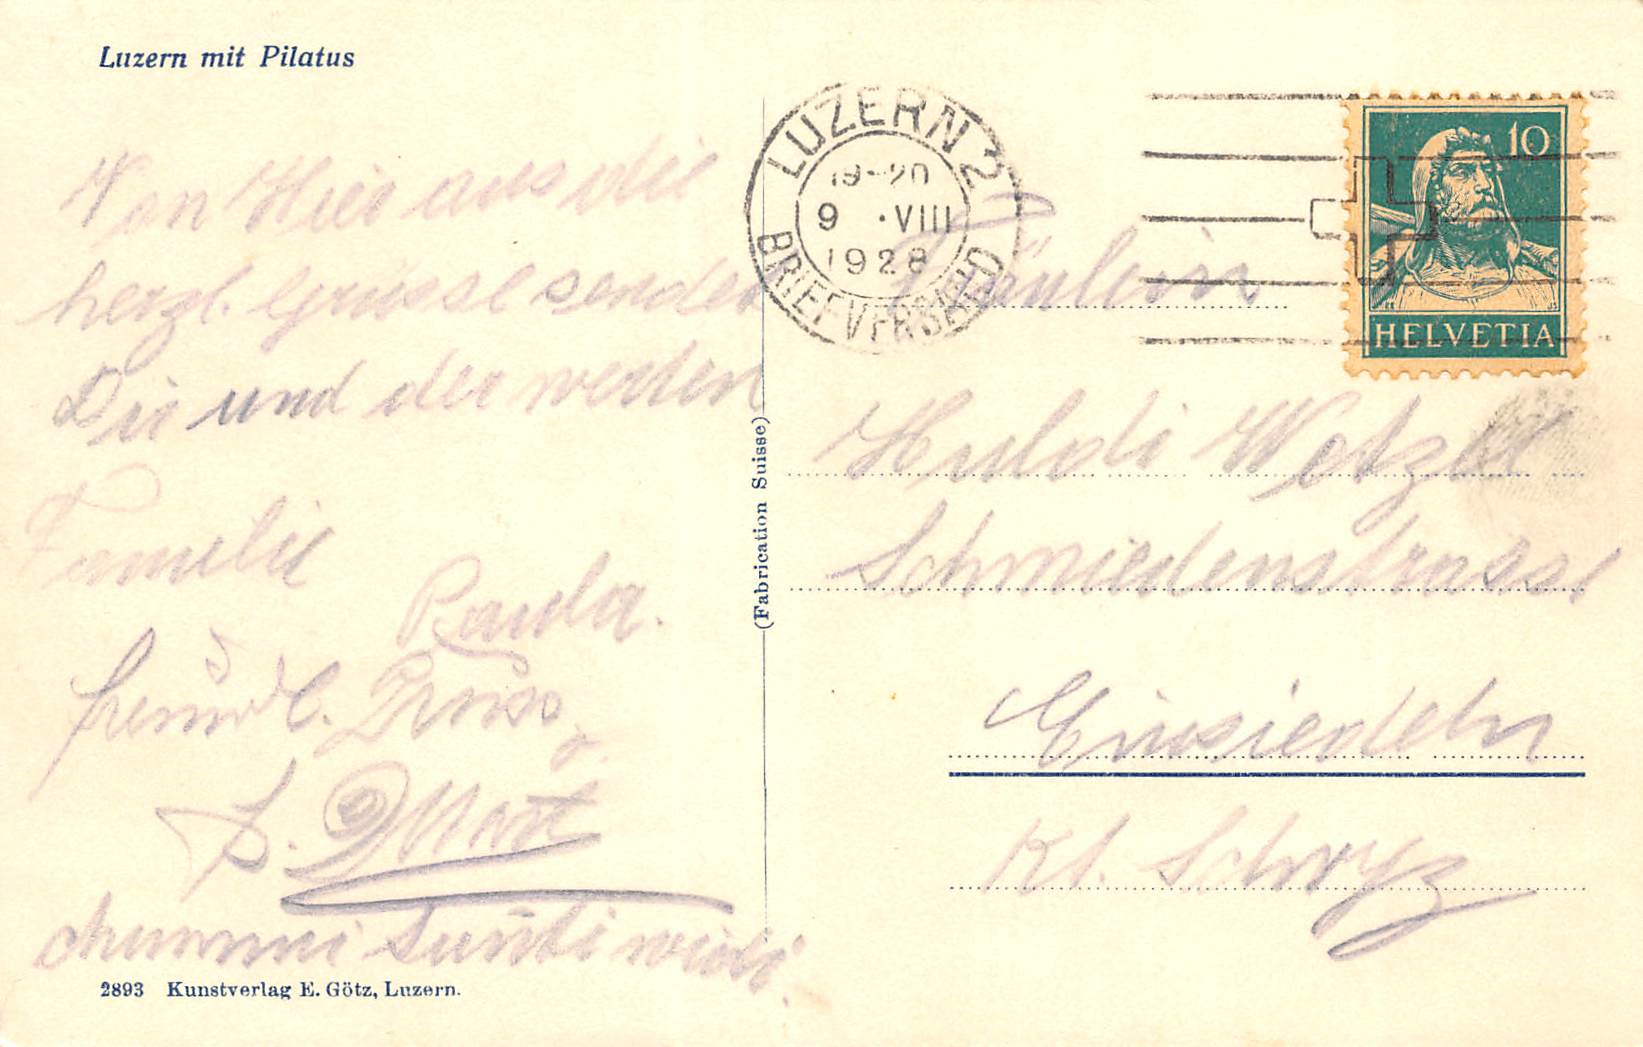 Luzern mit Pilatus
Von Hier aus die
herzl. Grüsse sendet
Dir und der werten
Familie
Paula.
freundl. Gruss
Mart
2893 Kunstverlag E. Götz, Luzern.
(Fabrication Suisse)
LUZERN 2
19-20
9 . VIII
1928
BRIEFVERSAND
10
HELVETIA
Fräulein
Huldi Wetzel
Schmiedenstrasse
Einsiedeln
Kt. Schwyz